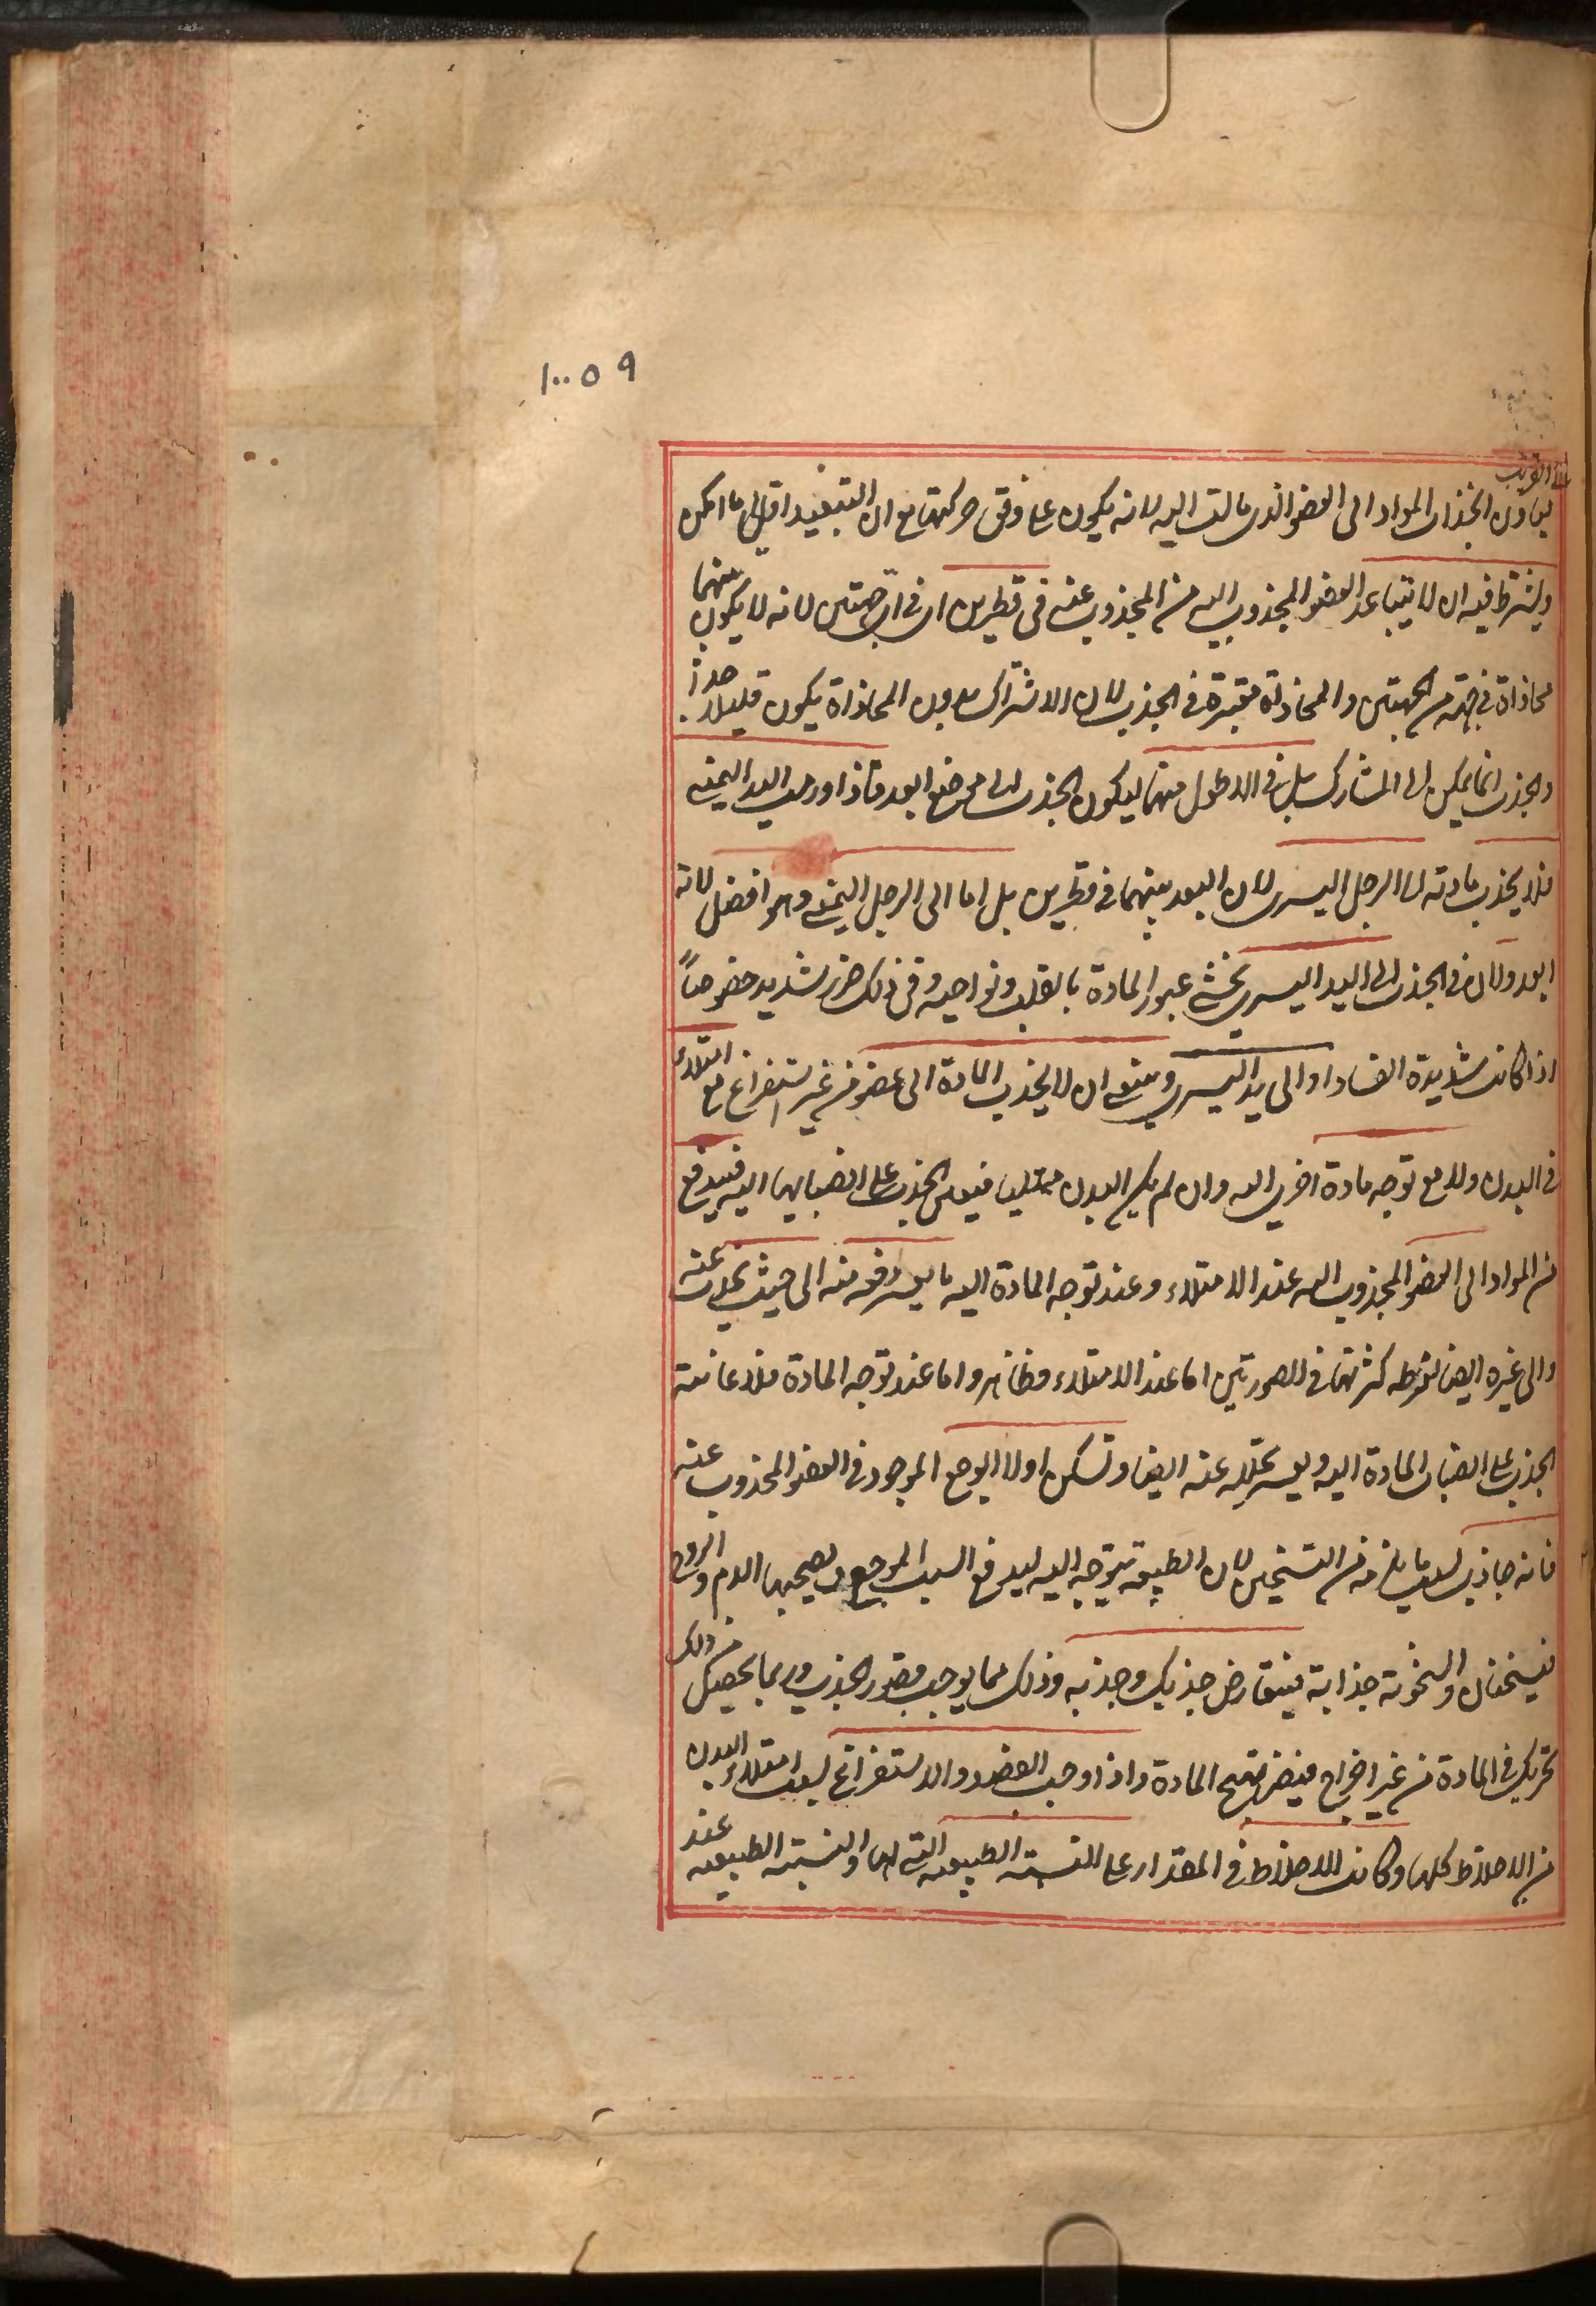 ١٠٠٥٩
الى القريب
يعاون انجذاب المواد الى العضو الذى مالت اليه لانه يكون على وفق حركتها مع ان التبعيد اقل ما امكن
ويشترط فيه ان لا يتباعد العضو المجذوب اليه من المجذوب عنه فى قطرين اى فى جهتين لانه لا يكون بينهما
محاذاة فى جهة من الجهتين والمحاذاة معتبرة فى الجذب لان الاشتراك بدون المحاذاة يكون قليلا جدا
والجذب انما يمكن الى المشارك بل فى الاطول منهما ليكون الجذب الى موضع ابعد فاذا ورمت اليد اليمنى
فلا يجذب مادته الى الرجل اليسرى لان البعد بينهما فى قطرين بل اما الى الرجل اليمنى وهو افضل لانه
ابعد ولان فى الجذب الى اليد اليسرى يخشى عبور المادة بالقلب ونواحيه وفى ذلك ضرر شديد خصوصاً
اذا كانت شديدة الفساد او الى يد اليسرى وينبغى ان لا يجذب المادة الى عضو من غير استفراغ مع امتلاء
فى البدن ولا مع توجه مادة اخرى اليه وان لم يكن البدن ممتليا فيعين الجذب على انصبابها اليه فيندفع
من المواد الى العضو المجذوب اليه عند الامتلاء وعند توجه المادة اليه ما يعسر دفعه منه الى حيث يجذب عنه
والى غيره ايضا لفرط كثرتها فى الصورتين اما عند الامتلاء فظاهر واما عند توجه المادة فلاعانته
الجذب على انصباب المادة اليه ويعسر تحلله عنه ايضا وتسكن اولا الوجع الموجود فى العضو المجذوب عنه
فانه جاذب بسبب ما يلزمه من التسخين لان الطبيعة تتوجه اليه ليدفع السبب الموجع ويصحبها الدم والروح
فيسخنان والسخونة جذابة فيتعارض جذبك وجذبه وذلك مما يوجب قصور الجذب وربما يحصل من ذلك
تحريك فى المادة من غير اخراج فيضر بتهييج المادة واذا وجب الفصد والاستفراغ بسبب امتلاء البدن
من الاخلاط كلها وكانت الاخلاط فى المقدار على النسبة الطبيعية التى لها والنسبة الطبيعية عند